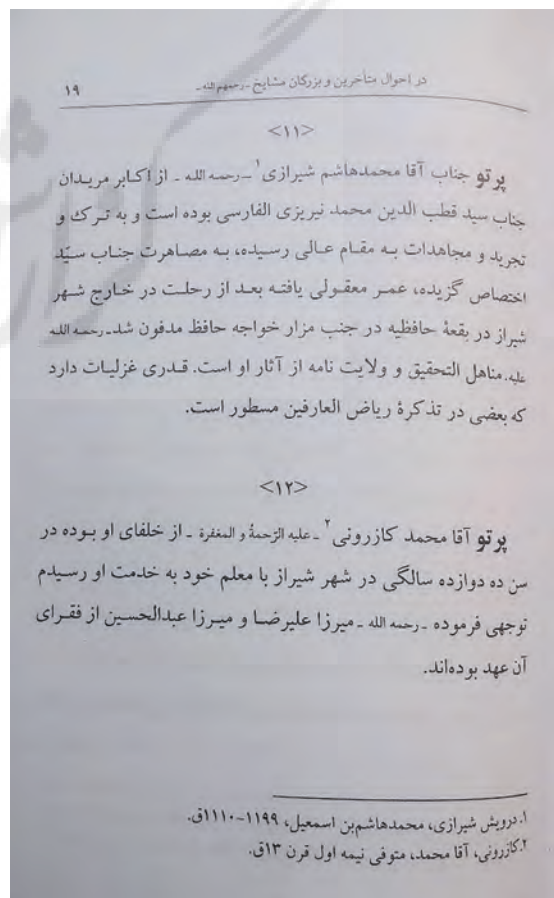 در احوال متأخرین و بزرگان مشایخ ـ رحمهم الله ـ ۱۹
<۱۱>
پرتو جناب آقا محمدهاشم شیرازی۱ ـ رحمه الله ـ از اکابر مریدان
جناب سید قطب الدین محمد نیریزی الفارسی بوده است و به ترک و
تجرید و مجاهدات به مقام عالی رسیده، به مصاهرت جناب سیّد
اختصاص گزیده، عمر معقولی یافته بعد از رحلت در خارج شهر
شیراز در بقعهٔ حافظیه در جنب مزار خواجه حافظ مدفون شد ـ رحمه الله
علیه. مناهل التحقیق و ولایت نامه از آثار او است. قدری غزلیات دارد
که بعضی در تذکرهٔ ریاض العارفین مسطور است.
<۱۲>
پرتو آقا محمد کازرونی۲ ـ علیه الرّحمةُ و المغفرة ـ از خلفای او بوده در
سن ده دوازده سالگی در شهر شیراز با معلم خود به خدمت او رسیدم
توجهی فرموده ـ رحمه الله ـ میرزا علیرضا و میرزا عبدالحسین از فقرای
آن عهد بوده‌اند.
۱. درویش شیرازی، محمدهاشم‌بن اسمعیل، ۱۱۹۹-۱۱۱۰ق.
۲. کازرونی، آقا محمد، متوفی نیمه اول قرن ۱۳ق.